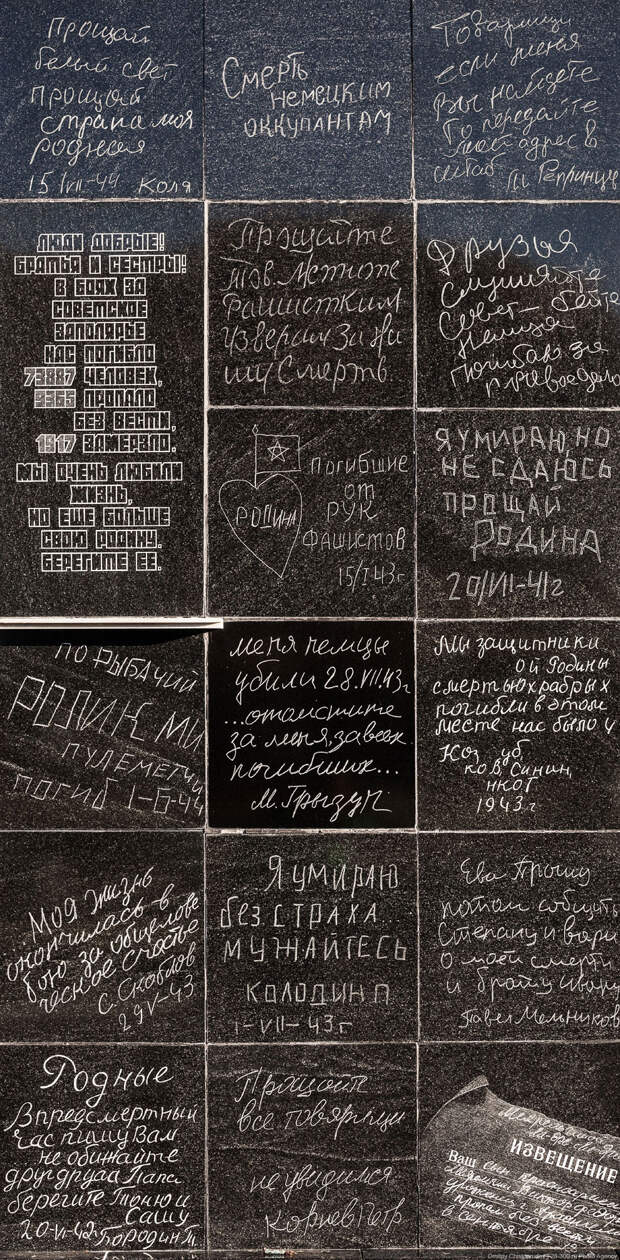 Прощай
белый свет
прощай
страна моя
родная
15/VII-44 Коля
Смерть
немецким
оккупантам
Товарищи
если меня
Вы найдете
То передайте
мой адрес в
штаб
ЛЮДИ ДОБРЫЕ!
БРАТЬЯ И СЕСТРЫ!
В БОЯХ ЗА
СОВЕТСКОЕ
ЗАПОЛЯРЬЕ
НАС ПОГИБЛО
73887 ЧЕЛОВЕК,
ПРОПАЛО
БЕЗ ВЕСТИ,
1517 ЗАМЕРЗЛО.
МЫ ОЧЕНЬ ЛЮБИЛИ
ЖИЗНЬ,
НО ЕЩЕ БОЛЬШЕ
СВОЮ РОДИНУ.
БЕРЕГИТЕ ЕЕ.
Прощайте
тов. Мстите
Фашистким
Узверям За На
шу Смерть
Друзья
слушайте
Совет - бейте
немца
погибаю за
правое дело
РОДИНА
Погибшие
от
РУК
Фашистов
15/I 43г
Я УМИРАЮ, НО
НЕ СДАЮСЬ
ПРОЩАЙ
РОДИНА
20/VII-41г
ПО РЫБАЧИЙ
РОЛИК МИ
ПУЛЕМЕТЧИ
ПОГИБ 1-6-44
меня немцы
убили 28.VII.43г
...отомстите
за меня, за всех
погибших...
М. Грызун
Мы защитники
ой Родины
смертью храбрых
погибли в этом
месте нас было 4
Коз уб
ков, Синин,
нког
1943г
...Моя жизнь
окончилась в
бою за общелове
ческое счастье
29 V-43
Я УМИРАЮ
без СТРАХА...
МУЖАЙТЕСЬ
КОЛОДИН П
1-VII-43г
Ева Прошу
потом собщить
Степану и вари
о моей смерти
и брату Ивану
Павел Мельников
Родные
В предсмертный
час пишу Вам
не обижайте
друг друга Папа
берегите Тоню и
Сашу
20-VI-42г Бородин Т.
Прощайте
все товарищи
не увидился
Корнев Петр
ИЗВЕЩЕНИЕ
Ваш сын
пропал без вести
в сентябре